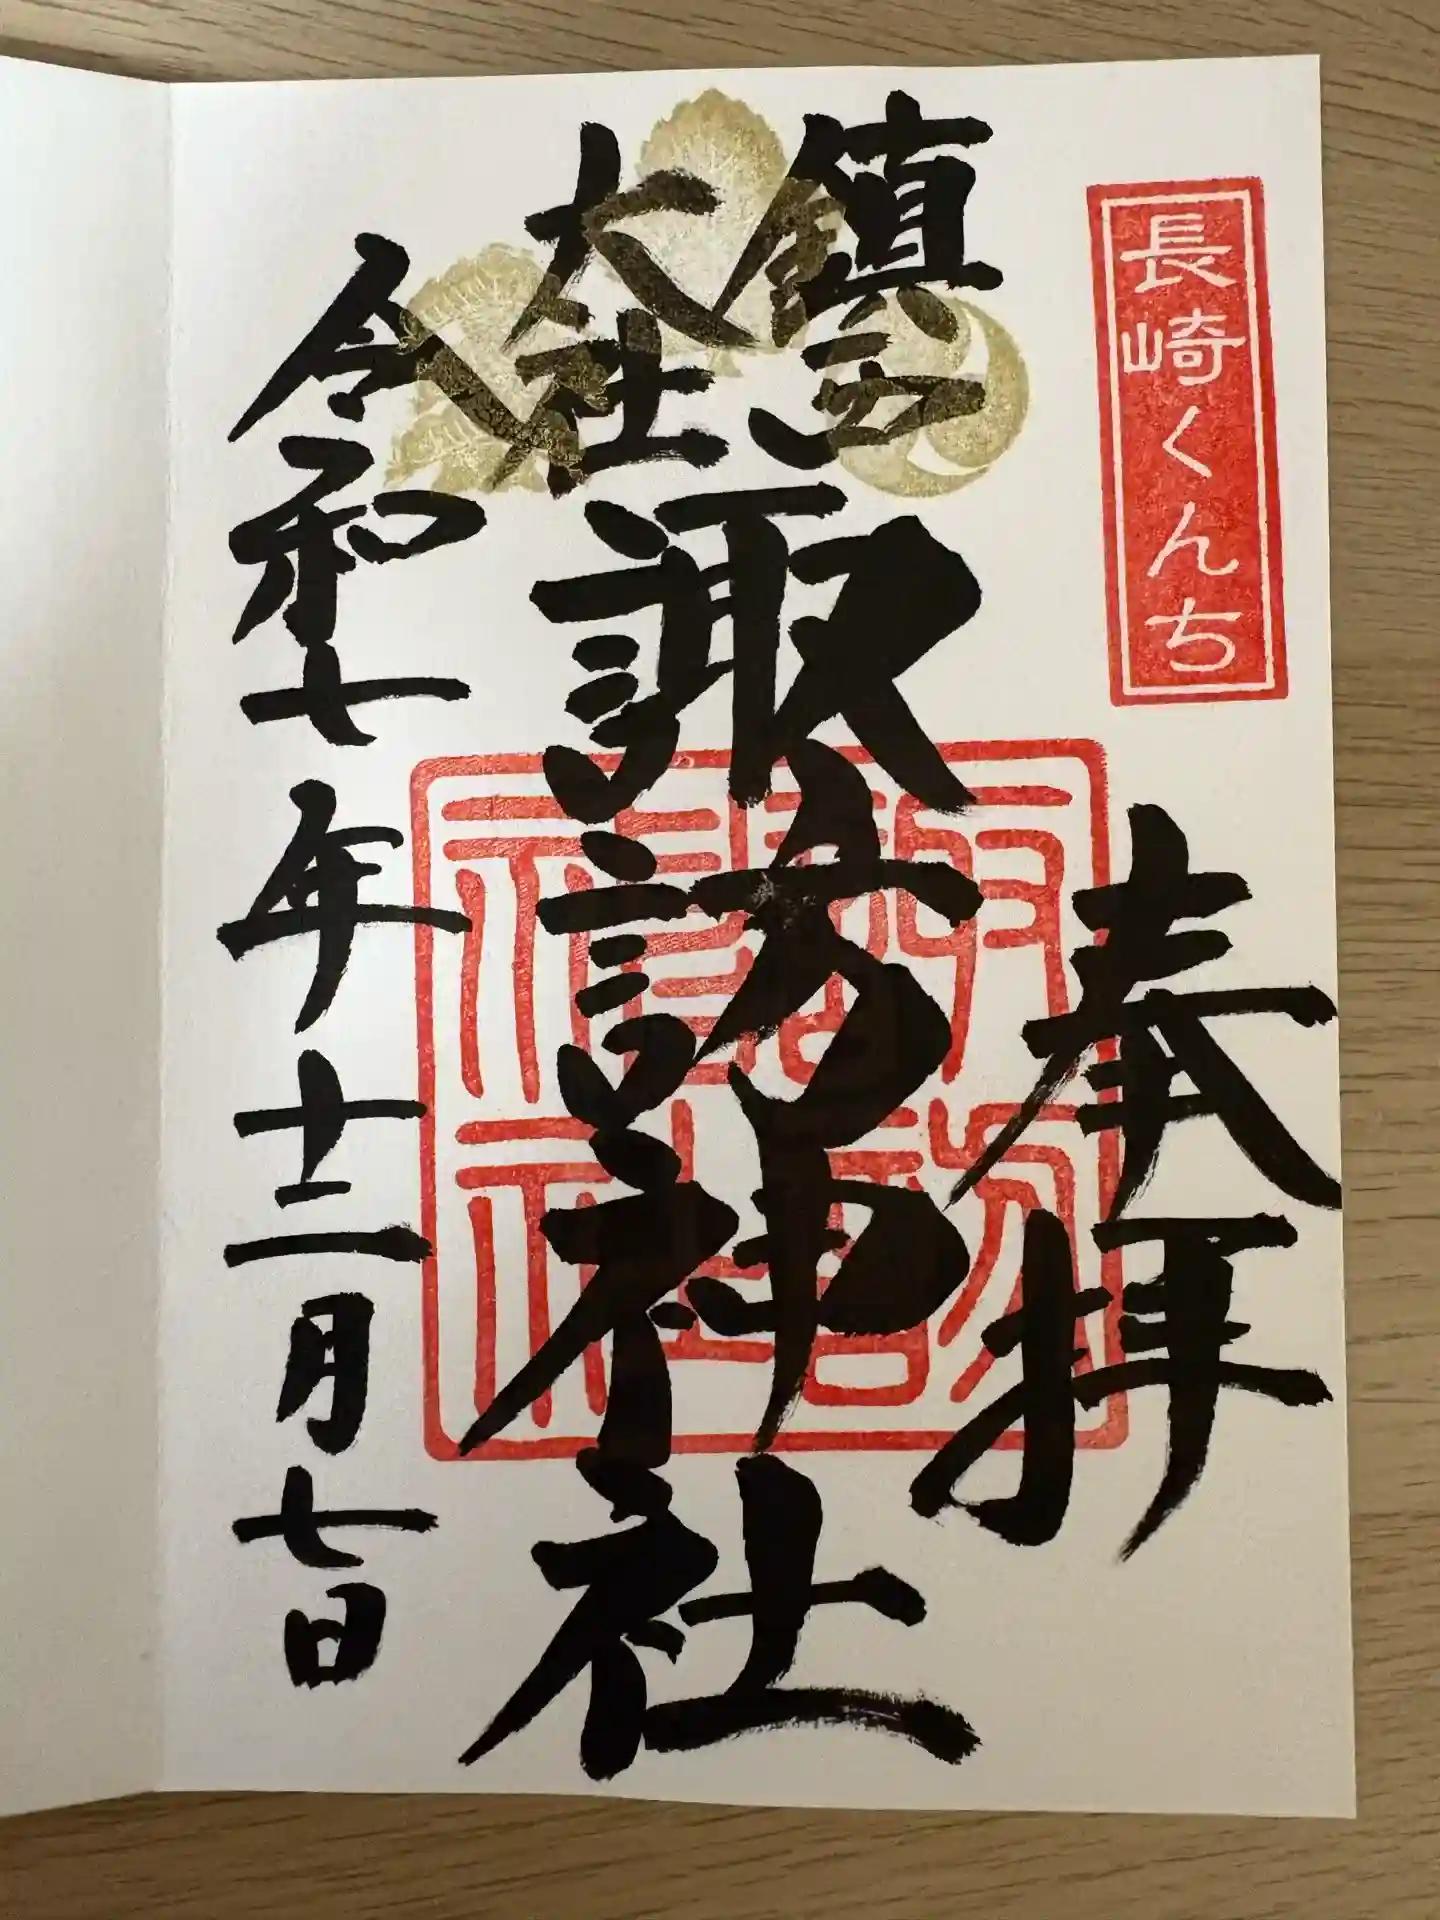 長崎くんち
奉拝
鎮西
大社
諏訪神社
令和七年十二月七日